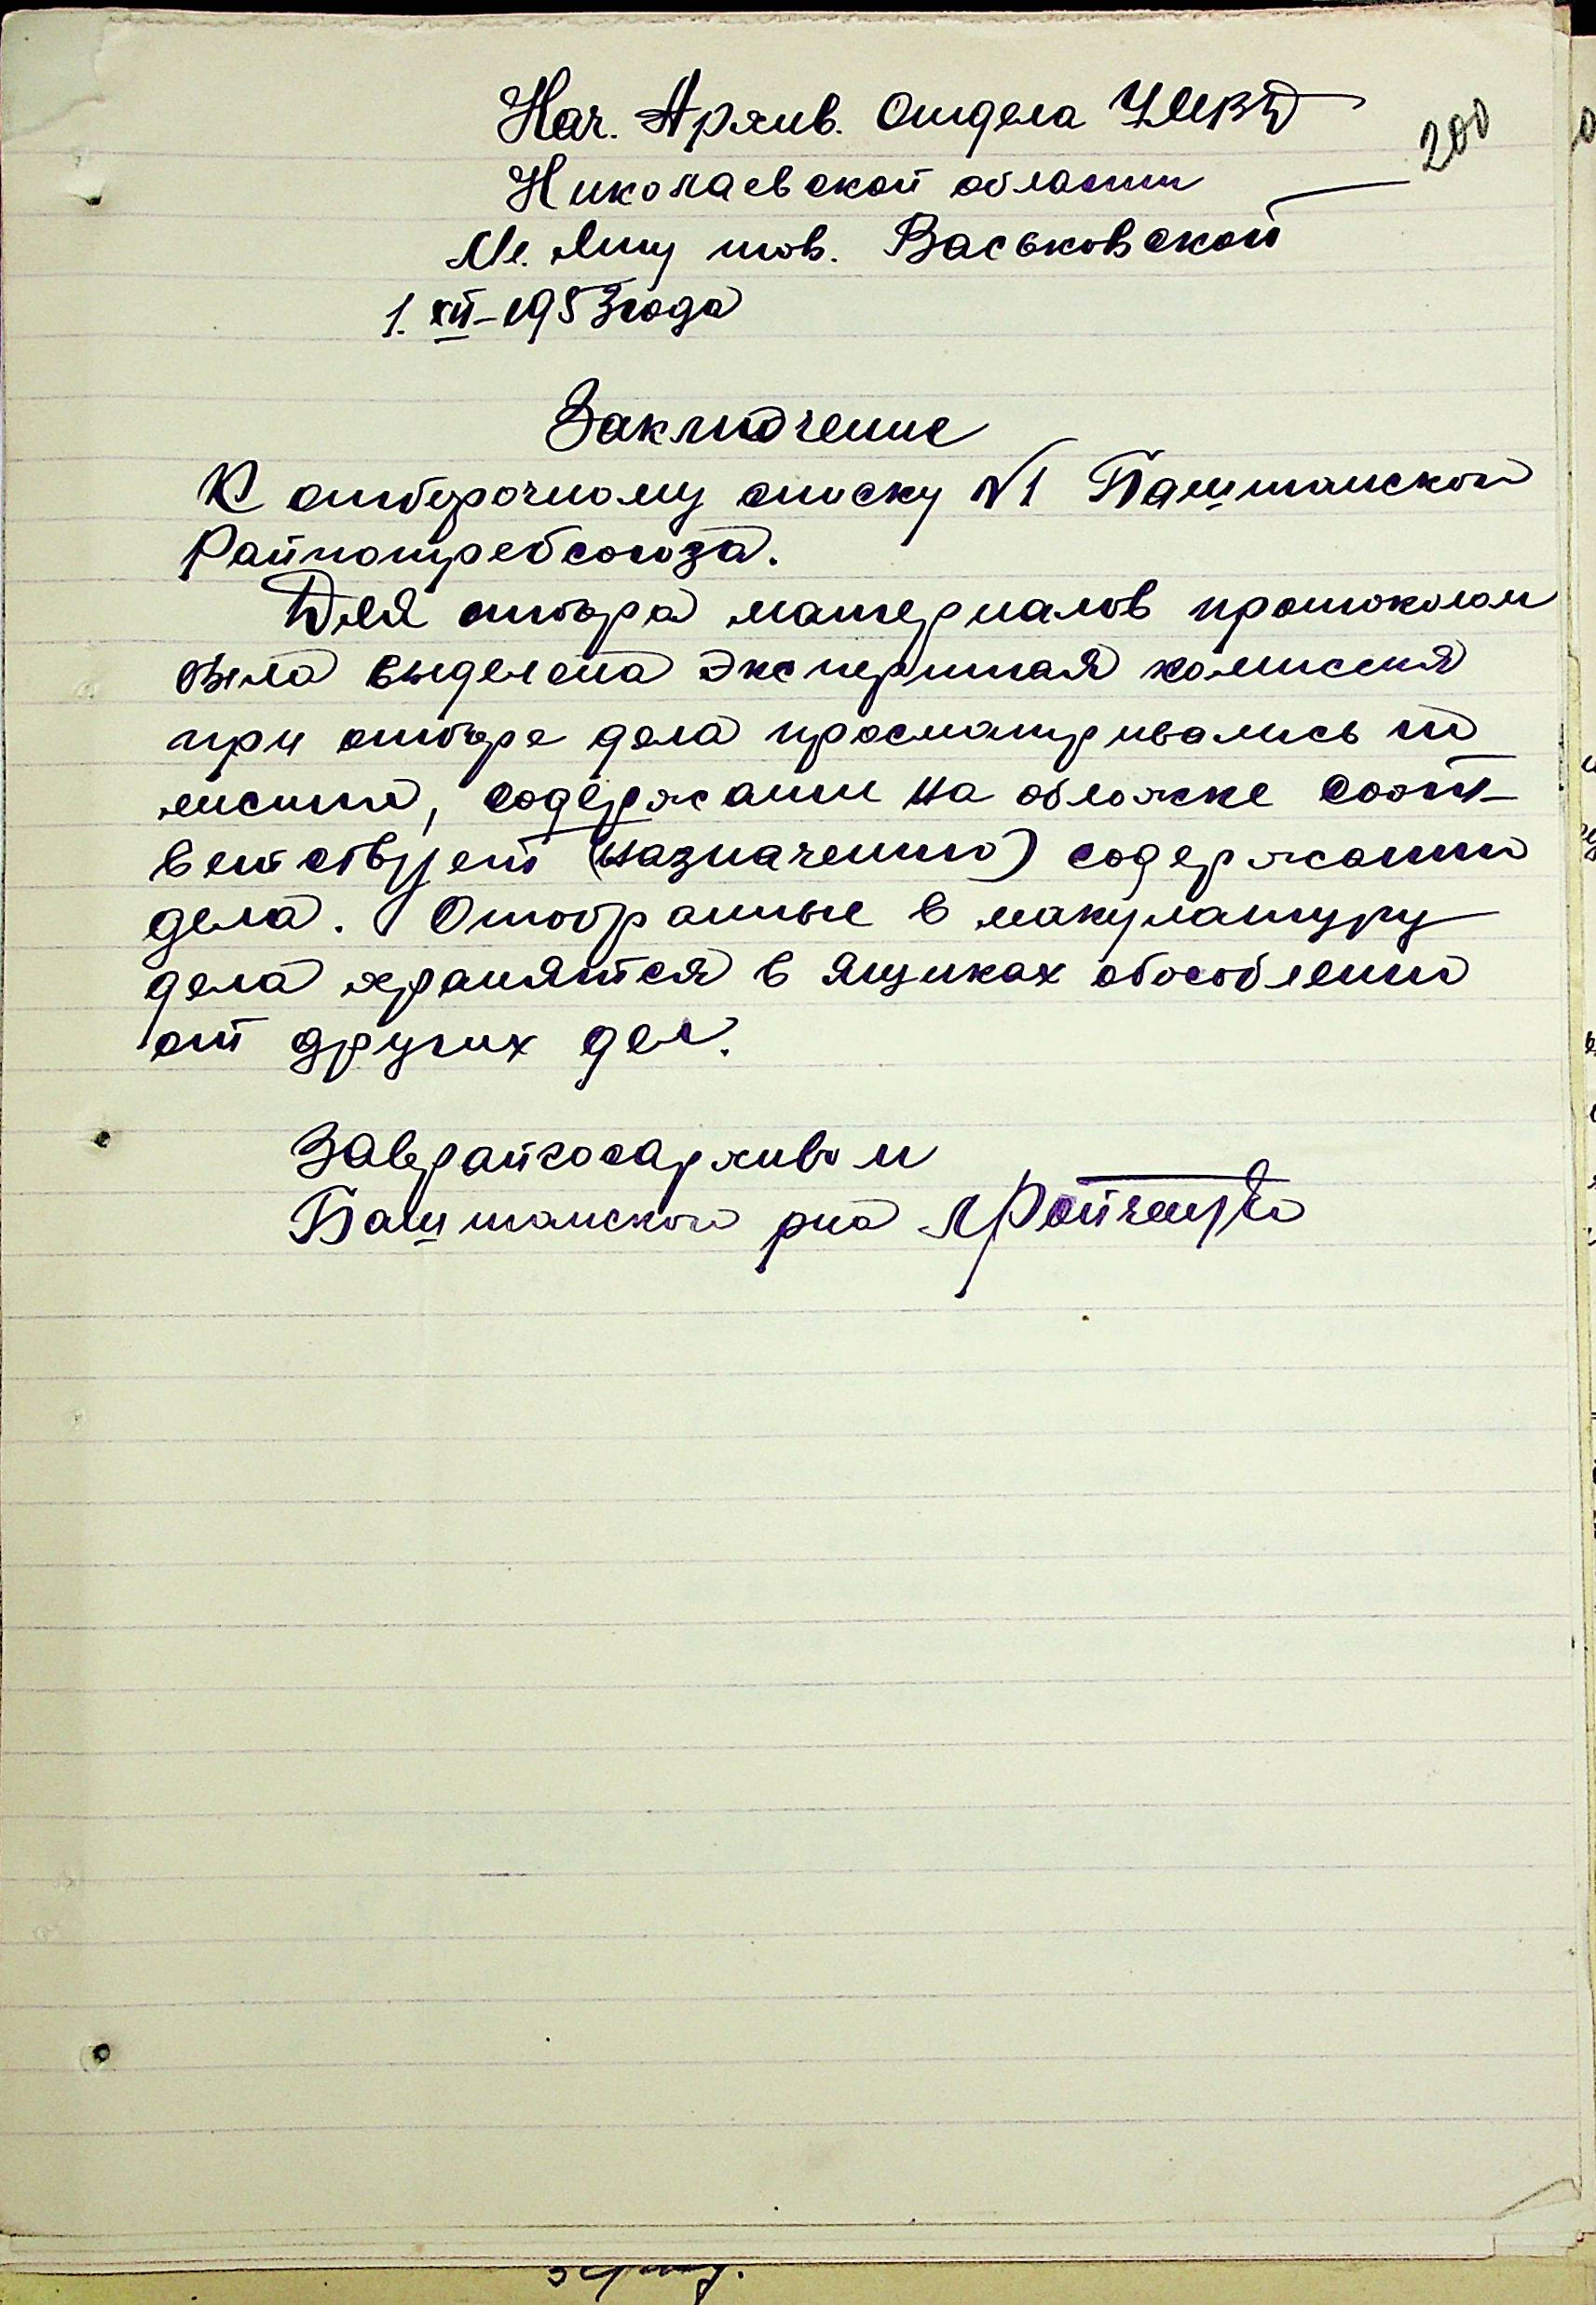 Нач. Архив. Отдела УМВД
200
Николаевской области
М. Лту тов. Васьковской
1. XII-1953 года
Заключение
К отборочному списку №1 Баштанского
Райпотребсоюза.
Для отбора материалов протоколом
была выделена экспертная комиссия
при отборе дела просматривались по
листно, содержание на обложке соот-
ветствует (назначению) содержанию
дела. Отобранные в макулатуру
дела хранятся в ящиках обособленно
от других дел.
Заврайгосархивом
Баштанского р-на